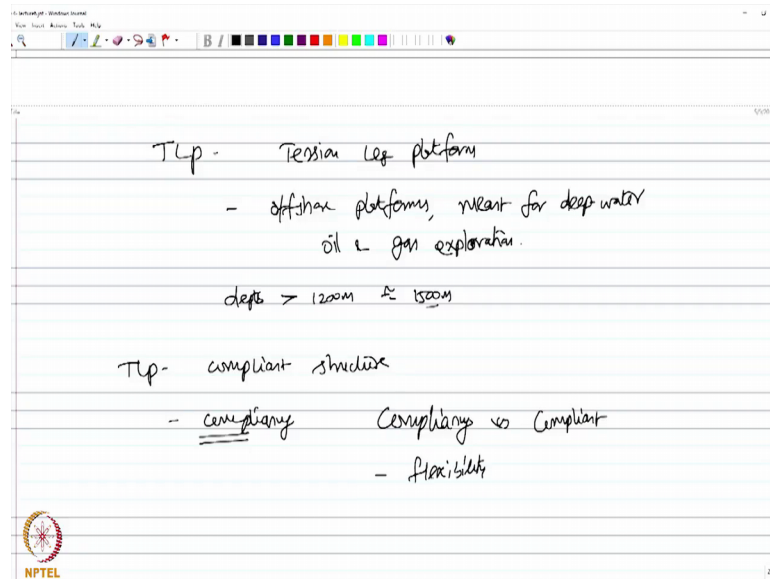 View Insert Actions Tools Help
B I
TLP - Tension Leg platform
- offshore platforms, meant for deep water
oil & gas exploration.
depts > 1200m ≈ 1500m
TLP - compliant structure
- compliancy Compliancy ⇔ Compliant
- flexibility
NPTEL